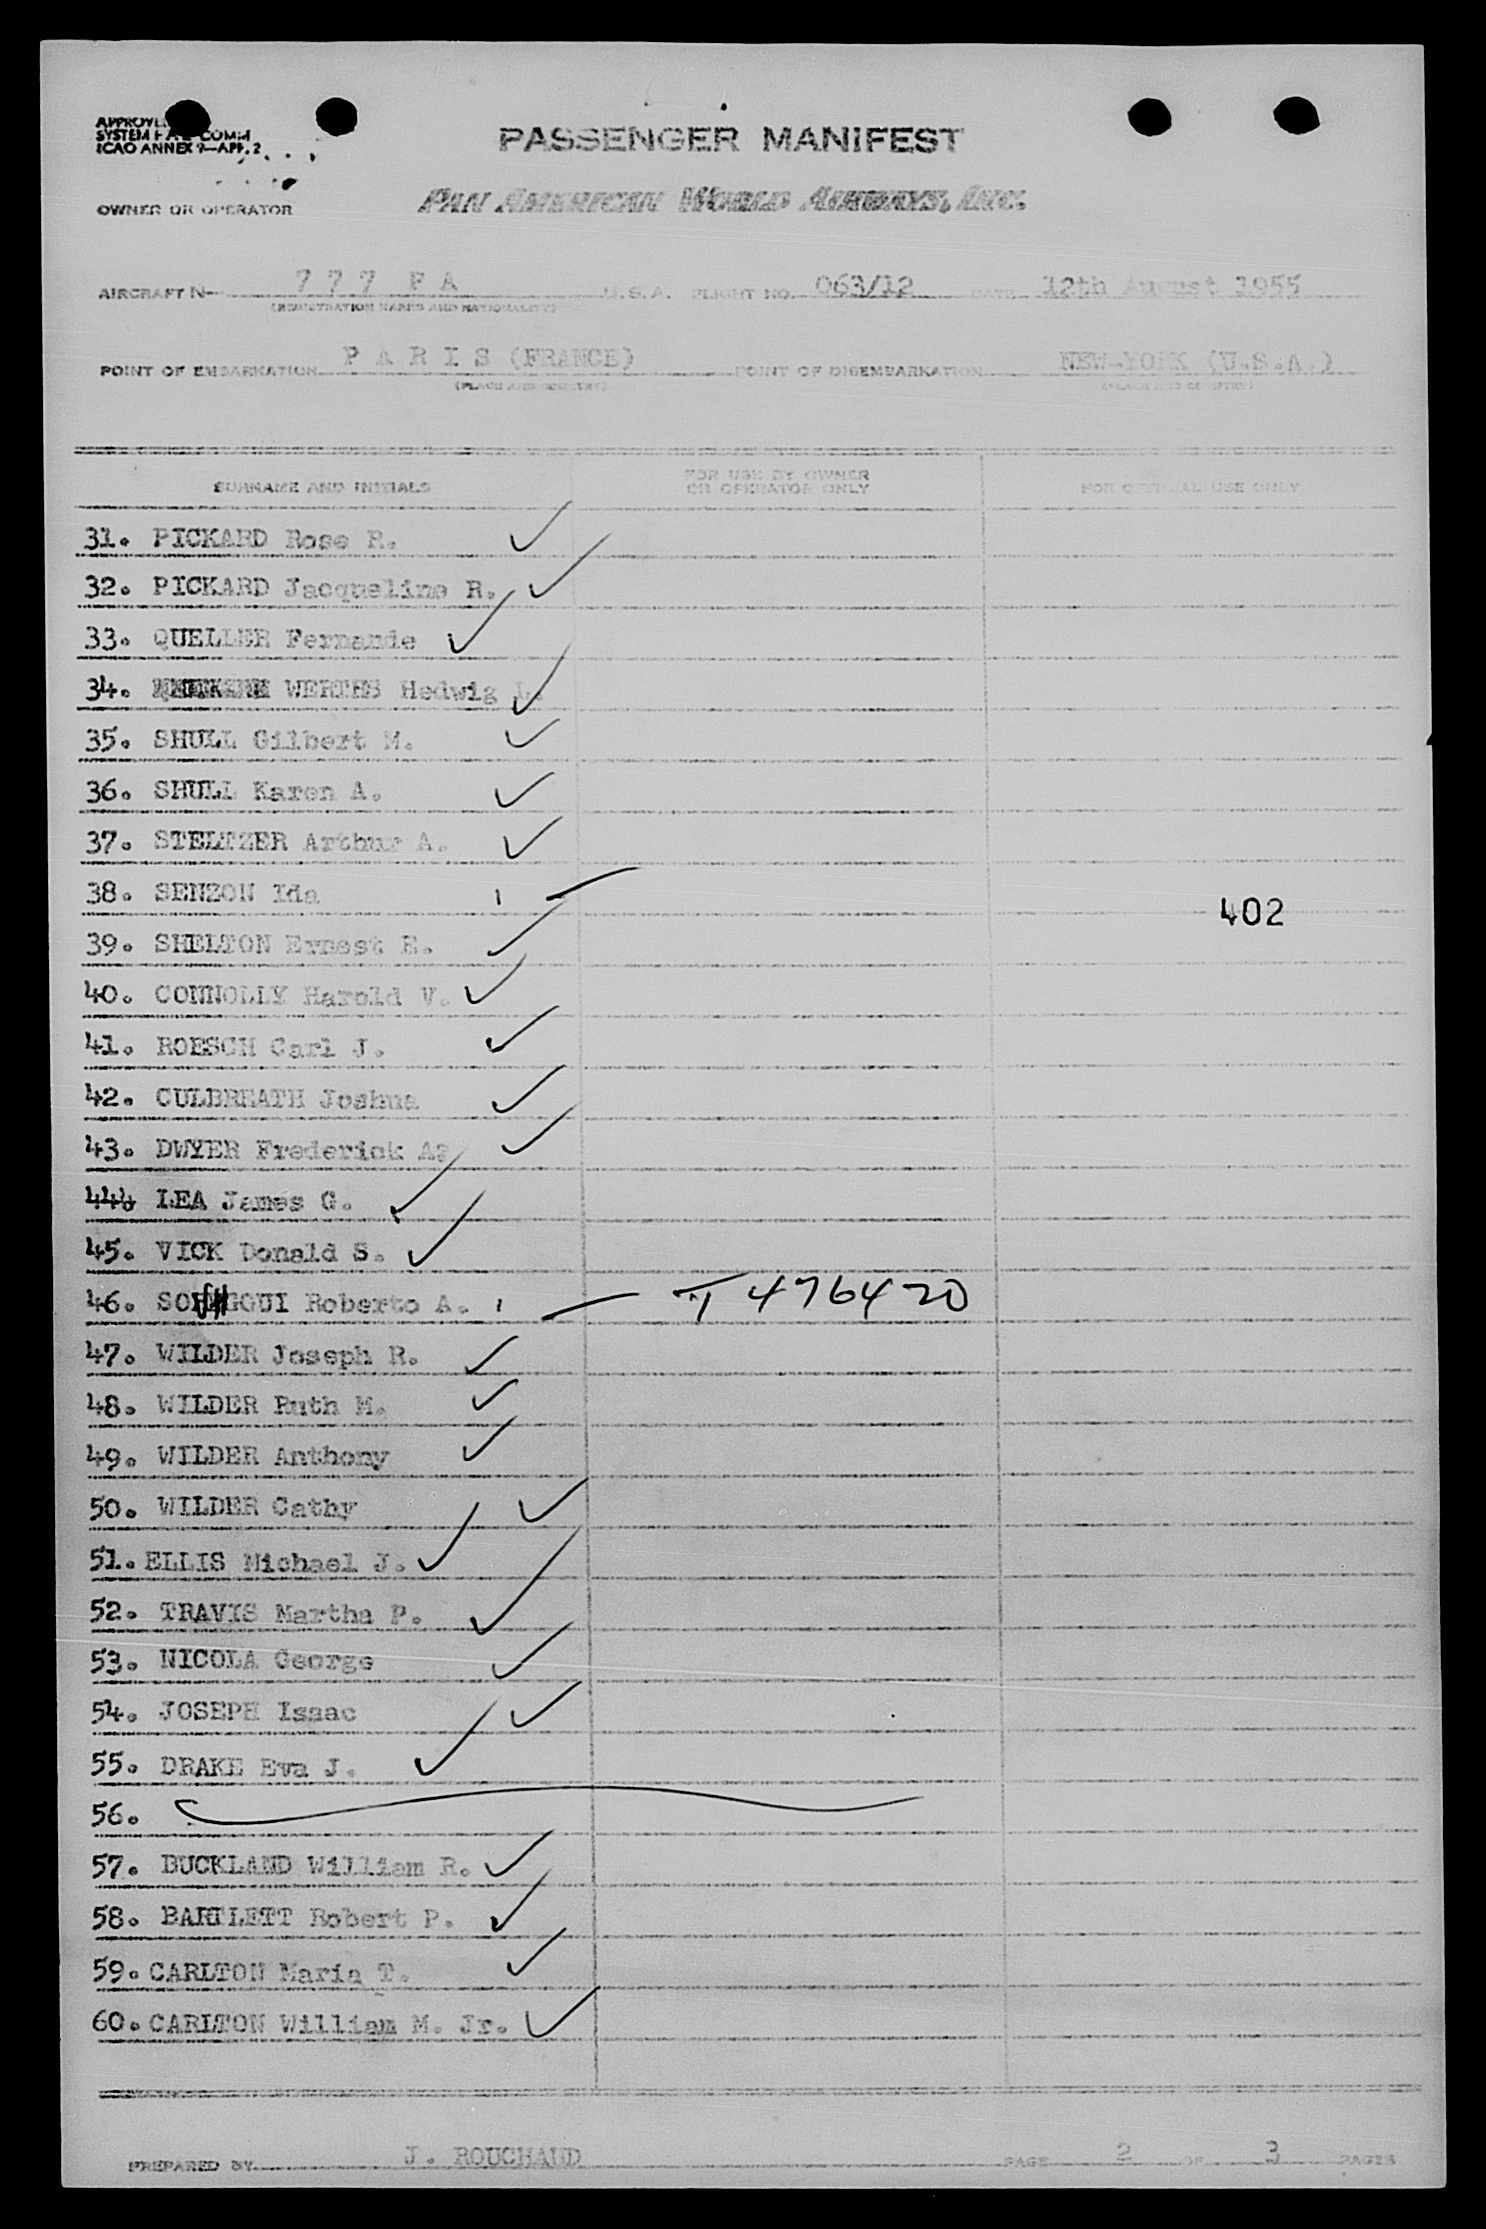 PASSENGER MANIFEST
SYSTEM COMM
ICAO ANNEX 9—APP. 2
OWNER OR OPERATOR PAN AMERICAN WORLD AIRWAYS, INC.
AIRCRAFT N- 7 7 7 F A U.S.A. FLIGHT NO. 063/12 DATE 12th August 1955
(REGISTRATION MARKS AND NATIONALITY)
POINT OF EMBARKATION P A R I S (FRANCE) POINT OF DISEMBARKATION NEW-YORK (U.S.A.)
(PLACE AND COUNTRY) (PLACE AND COUNTRY)
SURNAME AND INITIALS FOR USE BY OWNER OR OPERATOR ONLY FOR OFFICIAL USE ONLY
31. PICKARD Rose R.
32. PICKARD Jacqueline R.
33. QUELLER Fernande
34. WERTHS Hedwig L.
35. SHULL Gilbert M.
36. SHULL Karen A.
37. STELTZER Arthur A.
38. SENZON Ida
402
39. SHELTON Ernest E.
40. CONNOLLY Harold V.
41. ROESCH Carl J.
42. CULBREATH Joshua
43. DWYER Frederick A.
44. LEA James G.
45. VICK Donald S.
46. Roberto A. 476420
47. WILDER Joseph R.
48. WILDER Ruth M.
49. WILDER Anthony
50. WILDER Cathy
51. ELLIS Michael J.
52. TRAVIS Martha P.
53. NICOLA George
54. JOSEPH Isaac
55. DRAKE Eva J.
56.
57. BUCKLAND William R.
58. BARTLETT Robert P.
59. CARLTON Maria T.
60. CARLTON William M. Jr.
PREPARED BY J. ROUCHAUD PAGE 2 OF 3 PAGES